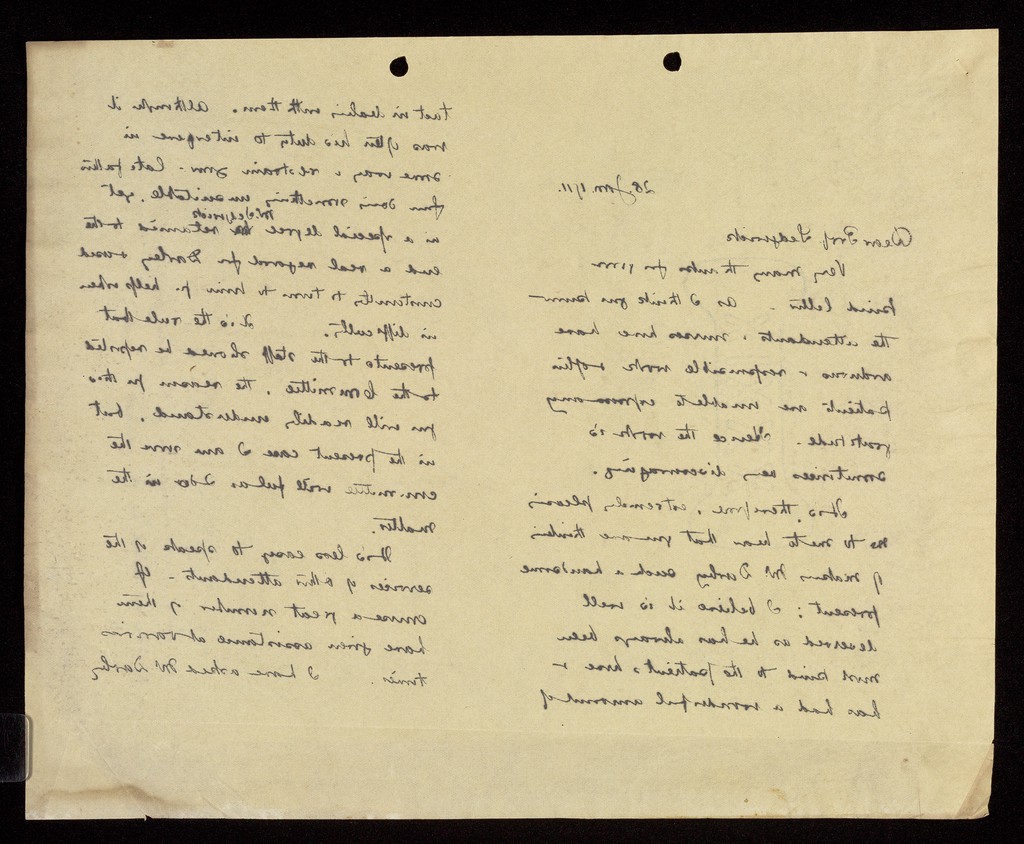 28 Jan. 1911.
Dear Prof. Sedgwick
Very many thanks for your
kind letter. As I think you know
the attendants & nurses here have
arduous & responsible work & often
patients are unable to express any
gratitude. Hence the work is
sometimes very discouraging.
It is, therefore, extremely pleasing
to me to hear that you are thinking
of making Mr Darby such a handsome
present; I believe it is well
deserved as he has always been
most kind to the patients here &
has had a wonderful amount of
tact in dealing with them. Although it
was often his duty to interpose in
some way & restrain your late father
from doing something unsuitable, yet
in a special degree Mr Sedgwick retained to the
end a real regard for Darby & used
constantly to turn to him for help when
in difficulty. It is the rule that
presents to the staff should be reported
to the Committee, the reason for this
you will readily understand, but
in the present case I am sure the
committee will feel as I do in the
matter.
It is less easy to speak of the
services of other attendants. Of
course a great number of them
have given assistance at various
times. I have asked Mr Darby